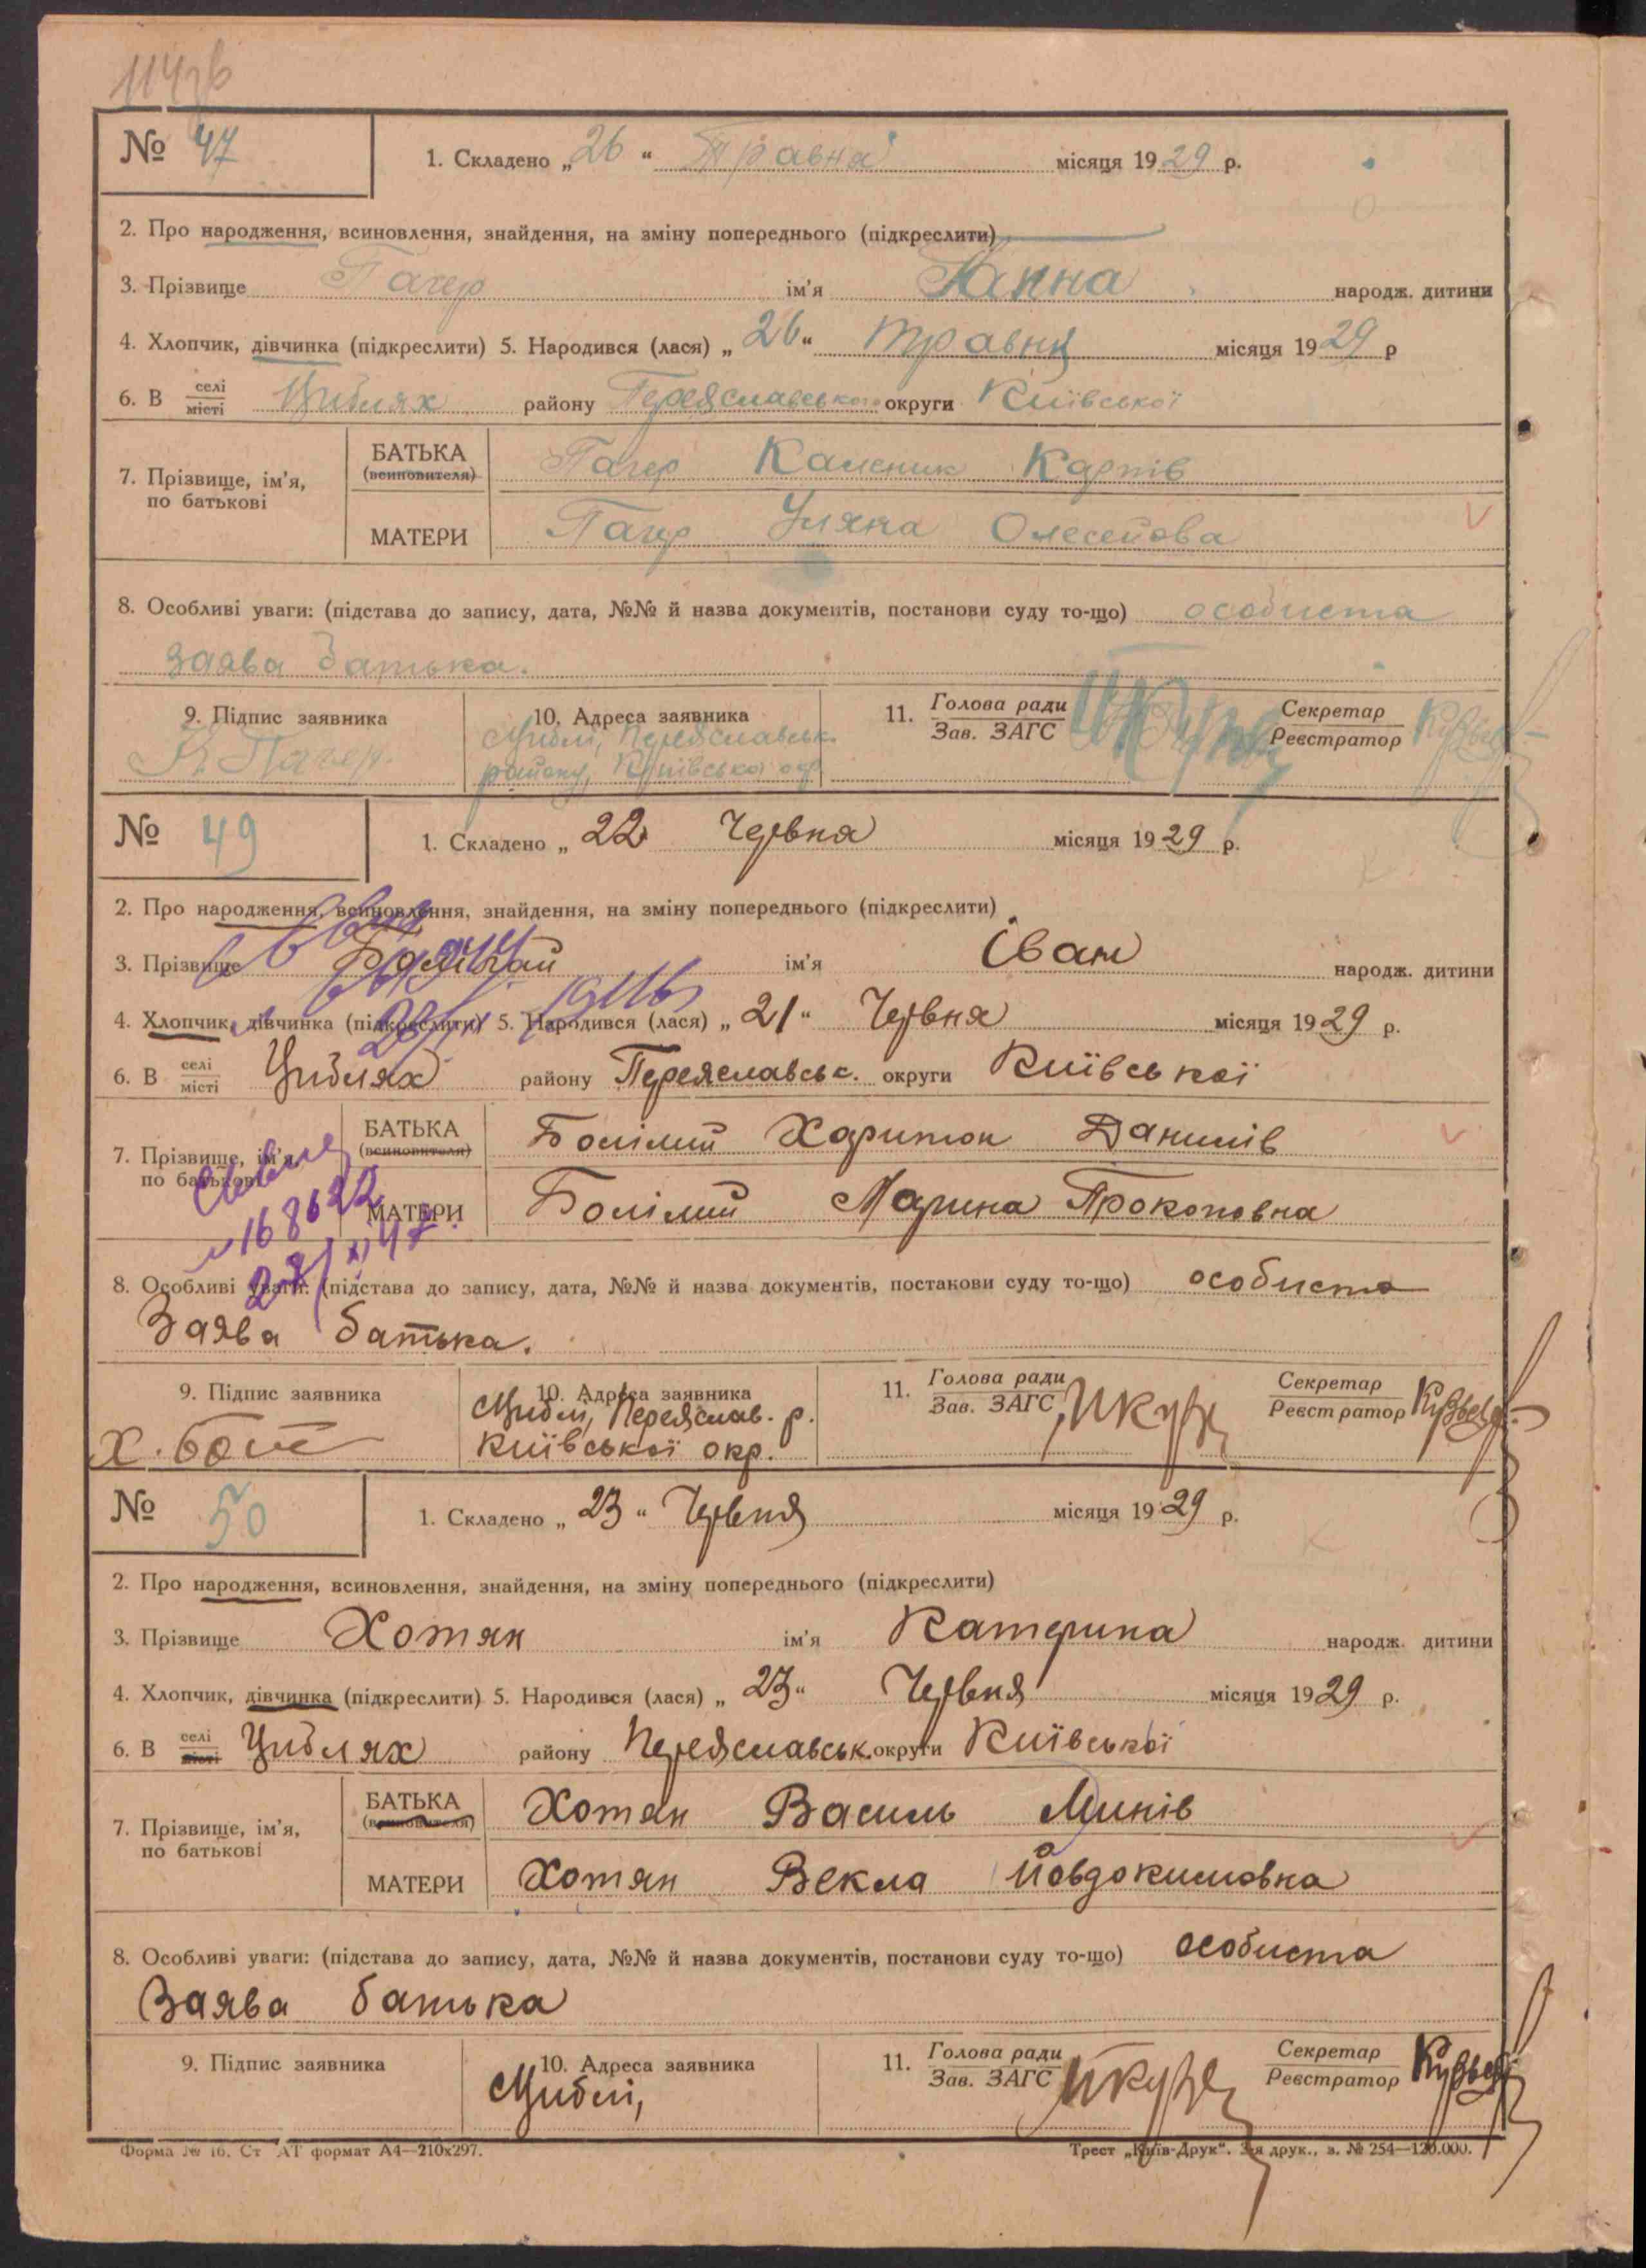 № 47
1. Складено „ 26 “ Травня місяця 1929 р.
2. Про народження, всиновлення, знайдення, на зміну попереднього (підкреслити)
3. Прізвище ім'я Ганна народж. дитини
4. Хлопчик, дівчинка (підкреслити) 5. Народився (лася) „ 26 “ травня місяця 1929 р
6. В селі місті Циблях району Переяславського округи Київської
7. Прізвище, ім'я, по батькові
БАТЬКА (всиновителя) Каленик Карпів
МАТЕРИ Уляна
8. Особливі уваги: (підстава до запису, дата, №№ й назва документів, постанови суду то-що) особиста
заява батька.
9. Підпис заявника
10. Адреса заявника
Циблі, Переяславськ.
району, Київської окр
11. Голова ради Зав. ЗАГС
Секретар Реєстратор
№ 49
1. Складено „ 22 Червня місяця 1929 р.
2. Про народження, всиновлення, знайдення, на зміну попереднього (підкреслити)
3. Прізвище ім'я Іван народж. дитини
4. Хлопчик, дівчинка (підкреслити) 5. Народився (лася) „ 21 “ Червня місяця 1929 р.
6. В селі місті Циблях району Переяславськ. округи Київської
7. Прізвище, ім'я, по батькові
БАТЬКА (всиновителя) Болілий Харитон Данилів
МАТЕРИ Болілий Марина Прокоповна
№ 168622
8. Особливі уваги: (підстава до запису, дата, №№ й назва документів, постанови суду то-що) особиста
Заява батька.
9. Підпис заявника
10. Адреса заявника
Циблі, Переяслав. р.
Київської окр.
11. Голова ради Зав. ЗАГС
Секретар Реєстратор
№ 50
1. Складено „ 23 “ Червня місяця 1929 р.
2. Про народження, всиновлення, знайдення, на зміну попереднього (підкреслити)
3. Прізвище Хотян ім'я Катерина народж. дитини
4. Хлопчик, дівчинка (підкреслити) 5. Народився (лася) „ 23 “ Червня місяця 1929 р.
6. В селі місті Циблях району Переяславськ. округи Київської
7. Прізвище, ім'я, по батькові
БАТЬКА (всиновителя) Хотян Василь Минів
МАТЕРИ Хотян Векла Йовдокимовна
8. Особливі уваги: (підстава до запису, дата, №№ й назва документів, постанови суду то-що) особиста
Заява батька
9. Підпис заявника
10. Адреса заявника
Циблі,
11. Голова ради Зав. ЗАГС
Секретар Реєстратор
Форма № 16. Ст АТ формат А4—210х297.
Трест „Київ-Друк“. 3-я друк., з. № 254—120.000.